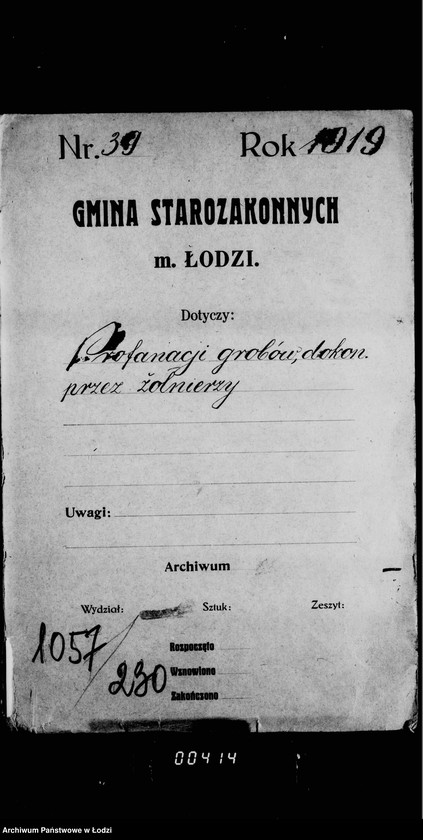 Nr. 39 Rok 1919
GMINA STAROZAKONNYCH
m. ŁODZI.
Dotyczy:
Profanacji grobów, dokon.
przez żołnierzy
Uwagi:
Archiwum
Wydział: Sztuk: Zeszyt:
1057
230
Rozpoczęto
Wznowiono
Zakończono
00414
Archiwum Państwowe w Łodzi